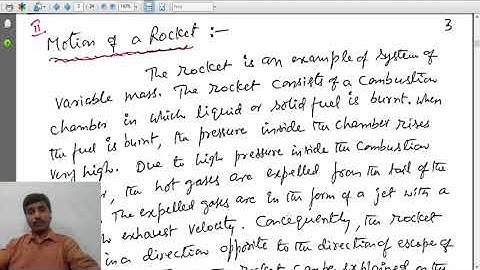 II Motion of a Rocket :- 3
The rocket is an example of system of
variable mass. The rocket consists of a Combustion
chamber in which liquid or solid fuel is burnt. When
the fuel is burnt, the pressure inside the chamber rises
very high. Due to high pressure inside the Combustion
the hot gases are expelled from the tail of the
The expelled gases are in the form of a jet with a
exhaust velocity. Concequently, the rocket
in a direction opposite to the direction of escape of
rocket can be explained on the